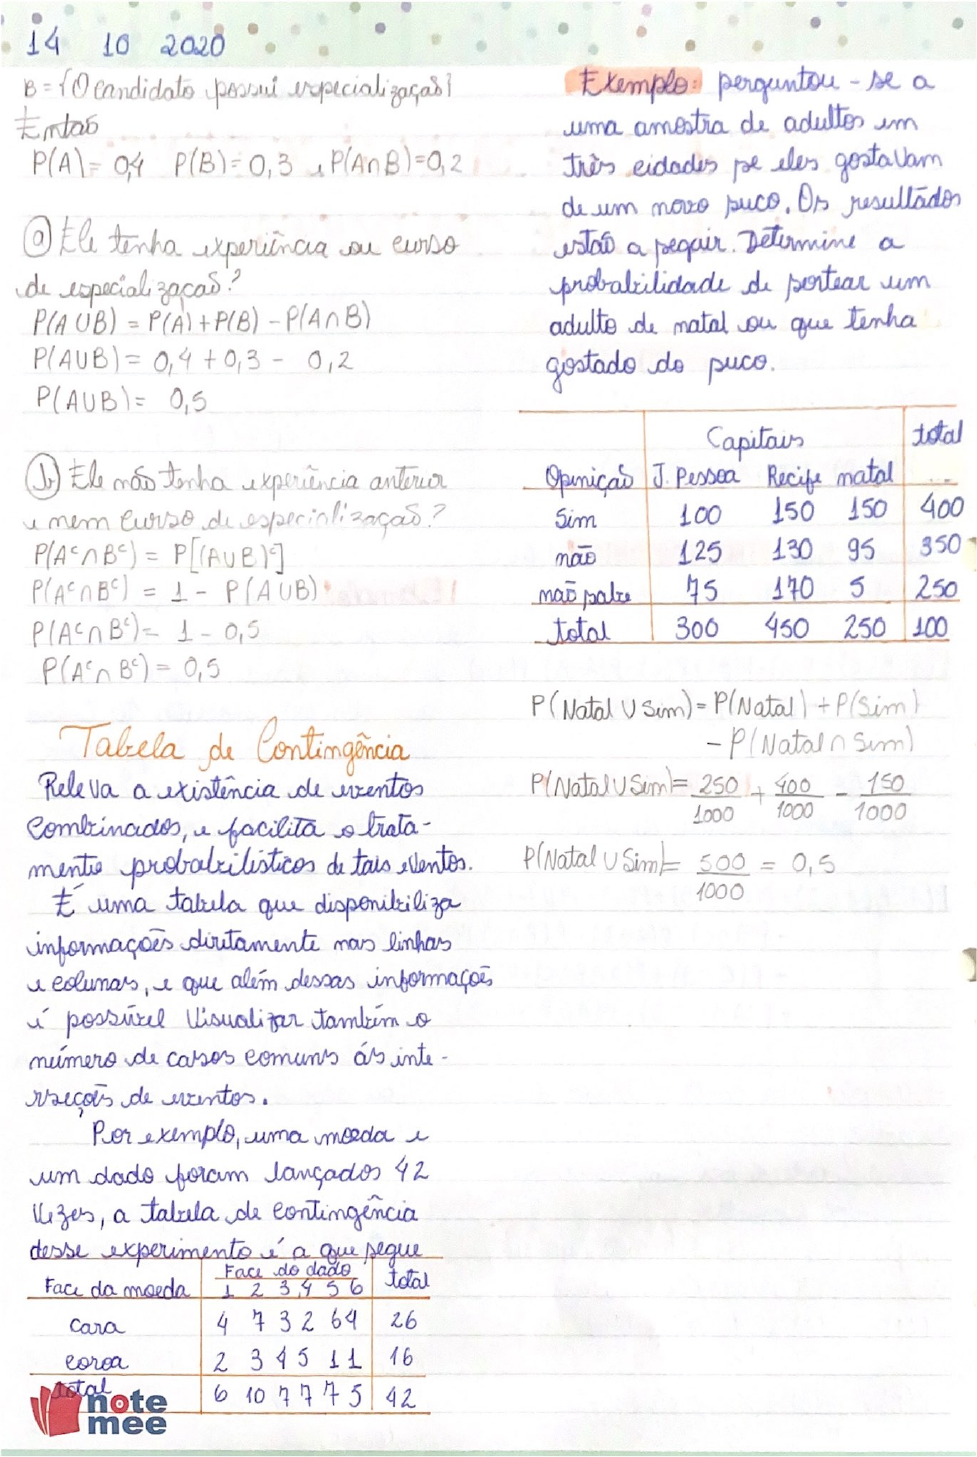 14 10 2020
B = {O candidato possui especialização}
Então
P(A) = 0,4 P(B) = 0,3 e P(A∩B) = 0,2
a) Ele tenha experiência ou curso
de especialização?
P(A∪B) = P(A) + P(B) - P(A∩B)
P(A∪B) = 0,4 + 0,3 - 0,2
P(A∪B) = 0,5
b) Ele não tenha experiência anterior
e nem curso de especialização?
P(Aᶜ∩Bᶜ) = P[(A∪B)ᶜ]
P(Aᶜ∩Bᶜ) = 1 - P(A∪B)
P(Aᶜ∩Bᶜ) = 1 - 0,5
P(Aᶜ∩Bᶜ) = 0,5
Tabela de Contingência
Releva a existência de eventos
combinados, e facilita o trata-
mento probabilísticos de tais eventos.
É uma tabela que disponibiliza
informações diretamente nas linhas
e colunas, e que além dessas informações
é possível visualizar também o
número de casos comuns ás inte-
rseções de eventos.
Por exemplo, uma moeda e
um dado foram lançados 42
vezes, a tabela de contingência
desse experimento é a que segue
Face da moeda Face do dado total
1 2 3 4 5 6
Cara 4 7 3 2 6 4 26
coroa 2 3 4 5 1 1 16
total 6 10 7 7 7 5 42
Exemplo: perguntou-se a
uma amostra de adultos em
três cidades se eles gostavam
de um novo suco. Os resultados
estão a seguir. Determine a
probabilidade de sortear um
adulto de natal ou que tenha
gostado do suco.
Capitais total
Opinição J. Pessoa Recife natal ...
Sim 100 150 150 400
não 125 130 95 350
não sabe 75 170 5 250
total 300 450 250 100
P(Natal ∪ Sim) = P(Natal) + P(Sim)
- P(Natal ∩ Sim)
P(Natal ∪ Sim) = 250/1000 + 400/1000 - 150/1000
P(Natal ∪ Sim) = 500/1000 = 0,5
note
mee